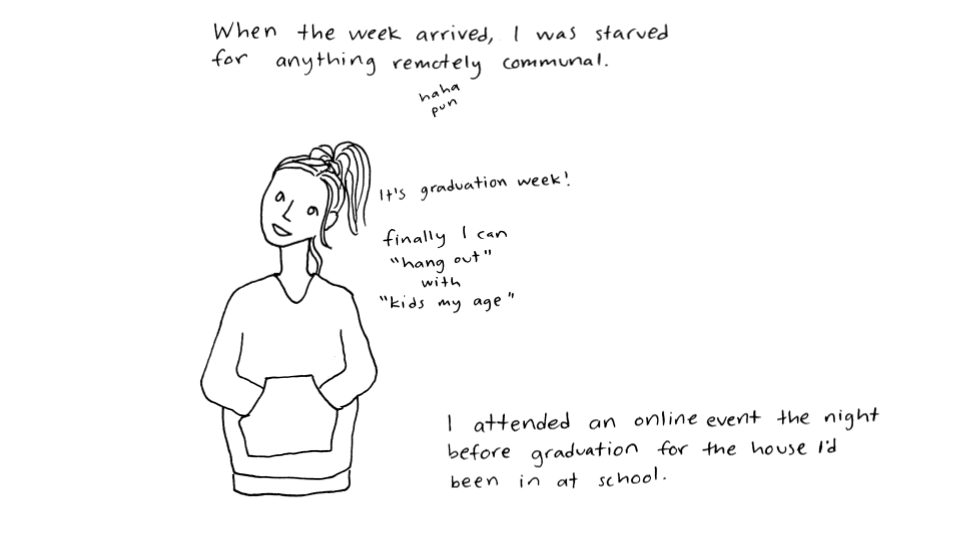 When the week arrived, I was starved
for anything remotely communal.
haha
pun
It's graduation week!
finally I can
"hang out"
with
"kids my age"
I attended an online event the night
before graduation for the house I'd
been in at school.